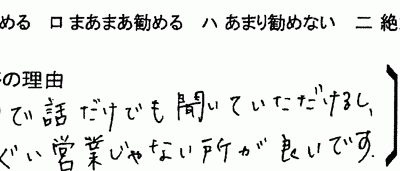 める ロ まあまあ勧める ハ あまり勧めない 二 絶
の理由
で話だけでも聞いていただけるし、
ぐい営業じゃない所が良いです。